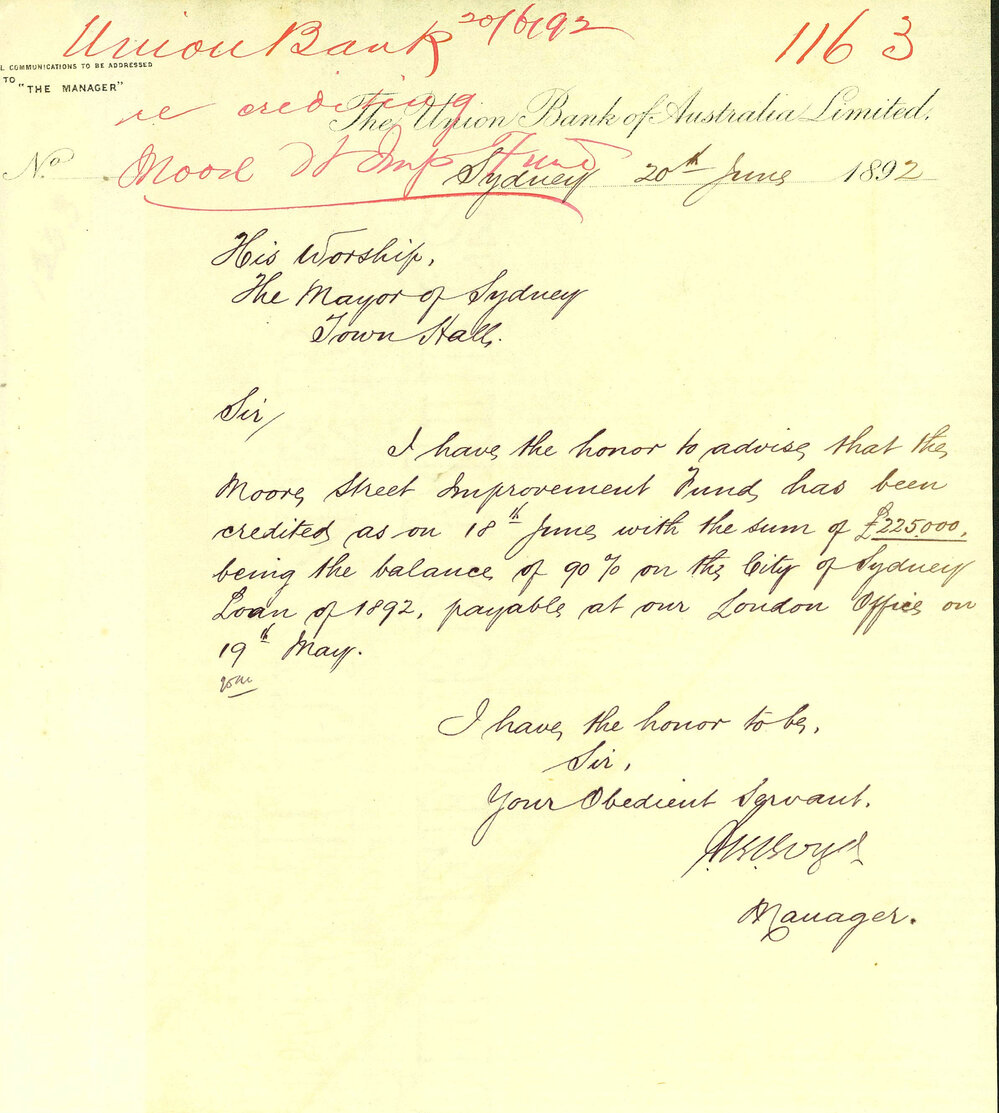 Union Bank 20/6/92
1163
L COMMUNICATIONS TO BE ADDRESSED
TO
"THE MANAGER"
re crediting
The Union Bank of Australia Limited.
Moore St Imp Fund
No
Sydney 20th June 1892
His Worship,
The Mayor of Sydney
Town Hall.
Sir/
I have the honor to advise that the
Moore Street Improvement Fund has been
credited as on 18th June with the sum of £225.000,
being the balance of 90% on the City of Sydney
Loan of 1892, payable at our London Office on
19th May.
I have the honor to be,
Sir,
Your Obedient Servant.
Manager.